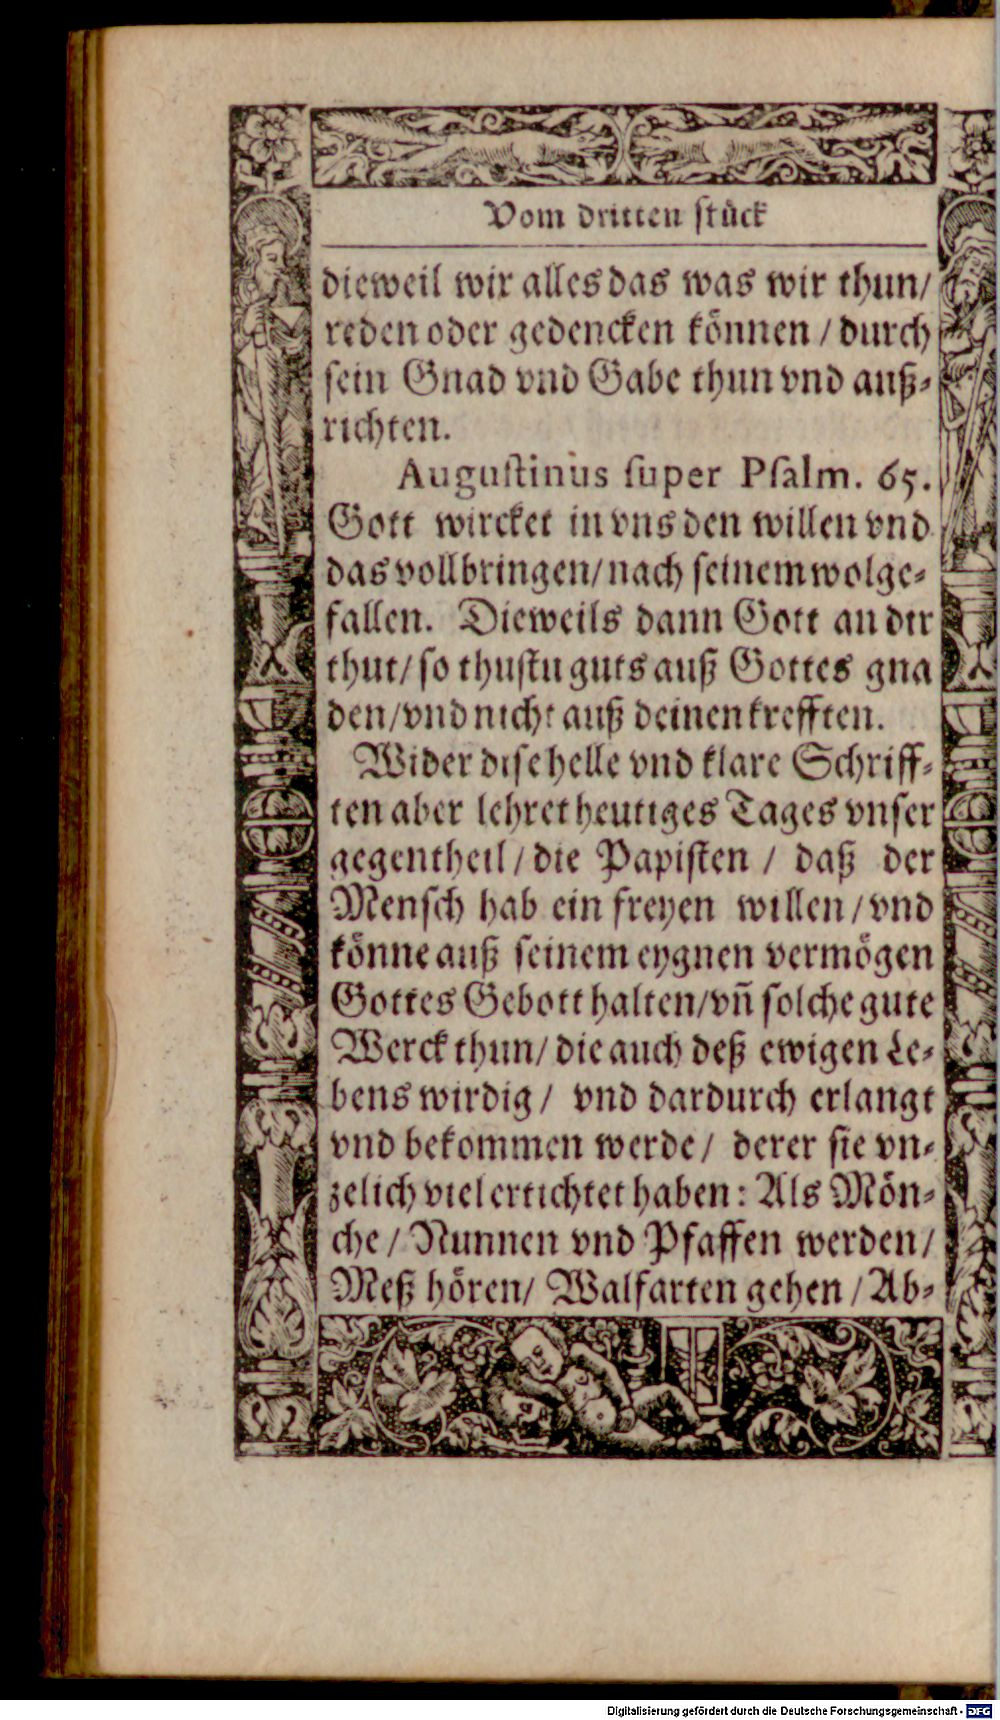 Vom dritten stück
dieweil wir alles das was wir thun/
reden oder gedencken können / durch
sein Gnad vnd Gabe thun vnd auß-
richten.
Augustinus super Psalm. 65.
Gott wircket in vns den willen vnd
das vollbringen/ nach seinem wolge-
fallen. Dieweils dann Gott an dir
thut/ so thustu guts auß Gottes gna
den/ vnd nicht auß deinen krefften.
Wider dise helle vnd klare Schriff-
ten aber lehret heutiges Tages vnser
gegentheil / die Papisten / daß der
Mensch hab ein freyen willen / vnd
könne auß seinem eygnen vermögen
Gottes Gebott halten/ vn̄ solche gute
Werck thun/ die auch deß ewigen Le-
bens wirdig / vnd dardurch erlangt
vnd bekommen werde / derer sie vn-
zelich viel ertichtet haben: Als Mön-
che / Nunnen vnd Pfaffen werden/
Meß hören/ Walfarten gehen / Ab-
Digitalisierung gefördert durch die Deutsche Forschungsgemeinschaft - DFG